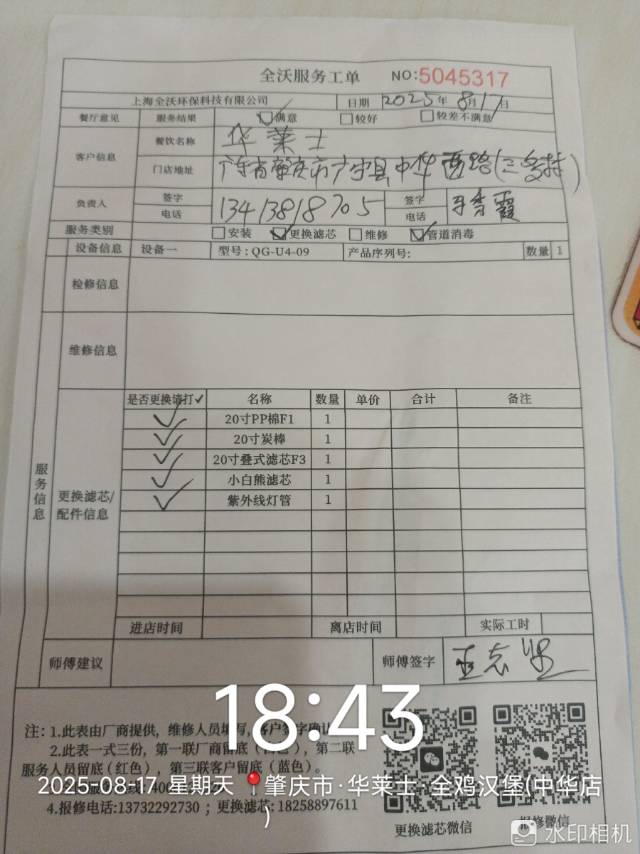 全沃服务工单 NO:5045317
上海全沃环保科技有限公司 日期 2025年8月17日
餐厅意见 服务结果 满意 较好 较差不满意
客户信息 餐饮名称 华莱士
门店地址 广东省肇庆市广宁县中华西路(三多村)
负责人 签字 电话 13413818705 签字 电话
服务类别 安装 更换滤芯 维修 管道消毒
设备信息 设备一 型号:QG-U4-09 产品序列号: 数量 1
检修信息
维修信息
服务信息
更换滤芯/配件信息
是否更换请打✓ 名称 数量 单价 合计 备注
✓ 20寸PP棉F1 1
✓ 20寸炭棒 1
✓ 20寸叠式滤芯F3 1
✓ 小白熊滤芯 1
✓ 紫外线灯管 1
进店时间 离店时间 实际工时
师傅建议 师傅签字
18:43
注:1.此表由厂商提供,维修人员填写,客户签字确认
2.此表一式三份,第一联厂商留底(白色),第二联
服务人员留底(红色),第三联客户留底(蓝色)。
2025-08-17 星期天 肇庆市·华莱士·全鸡汉堡(中华店)
4.报修电话:13732292730;更换滤芯:18258897611
更换滤芯微信 报修微信
水印相机